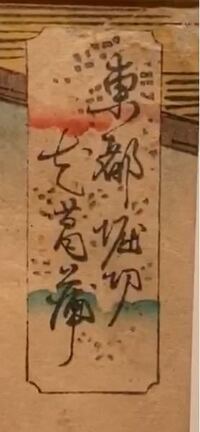 東都堀切
花菖蒲